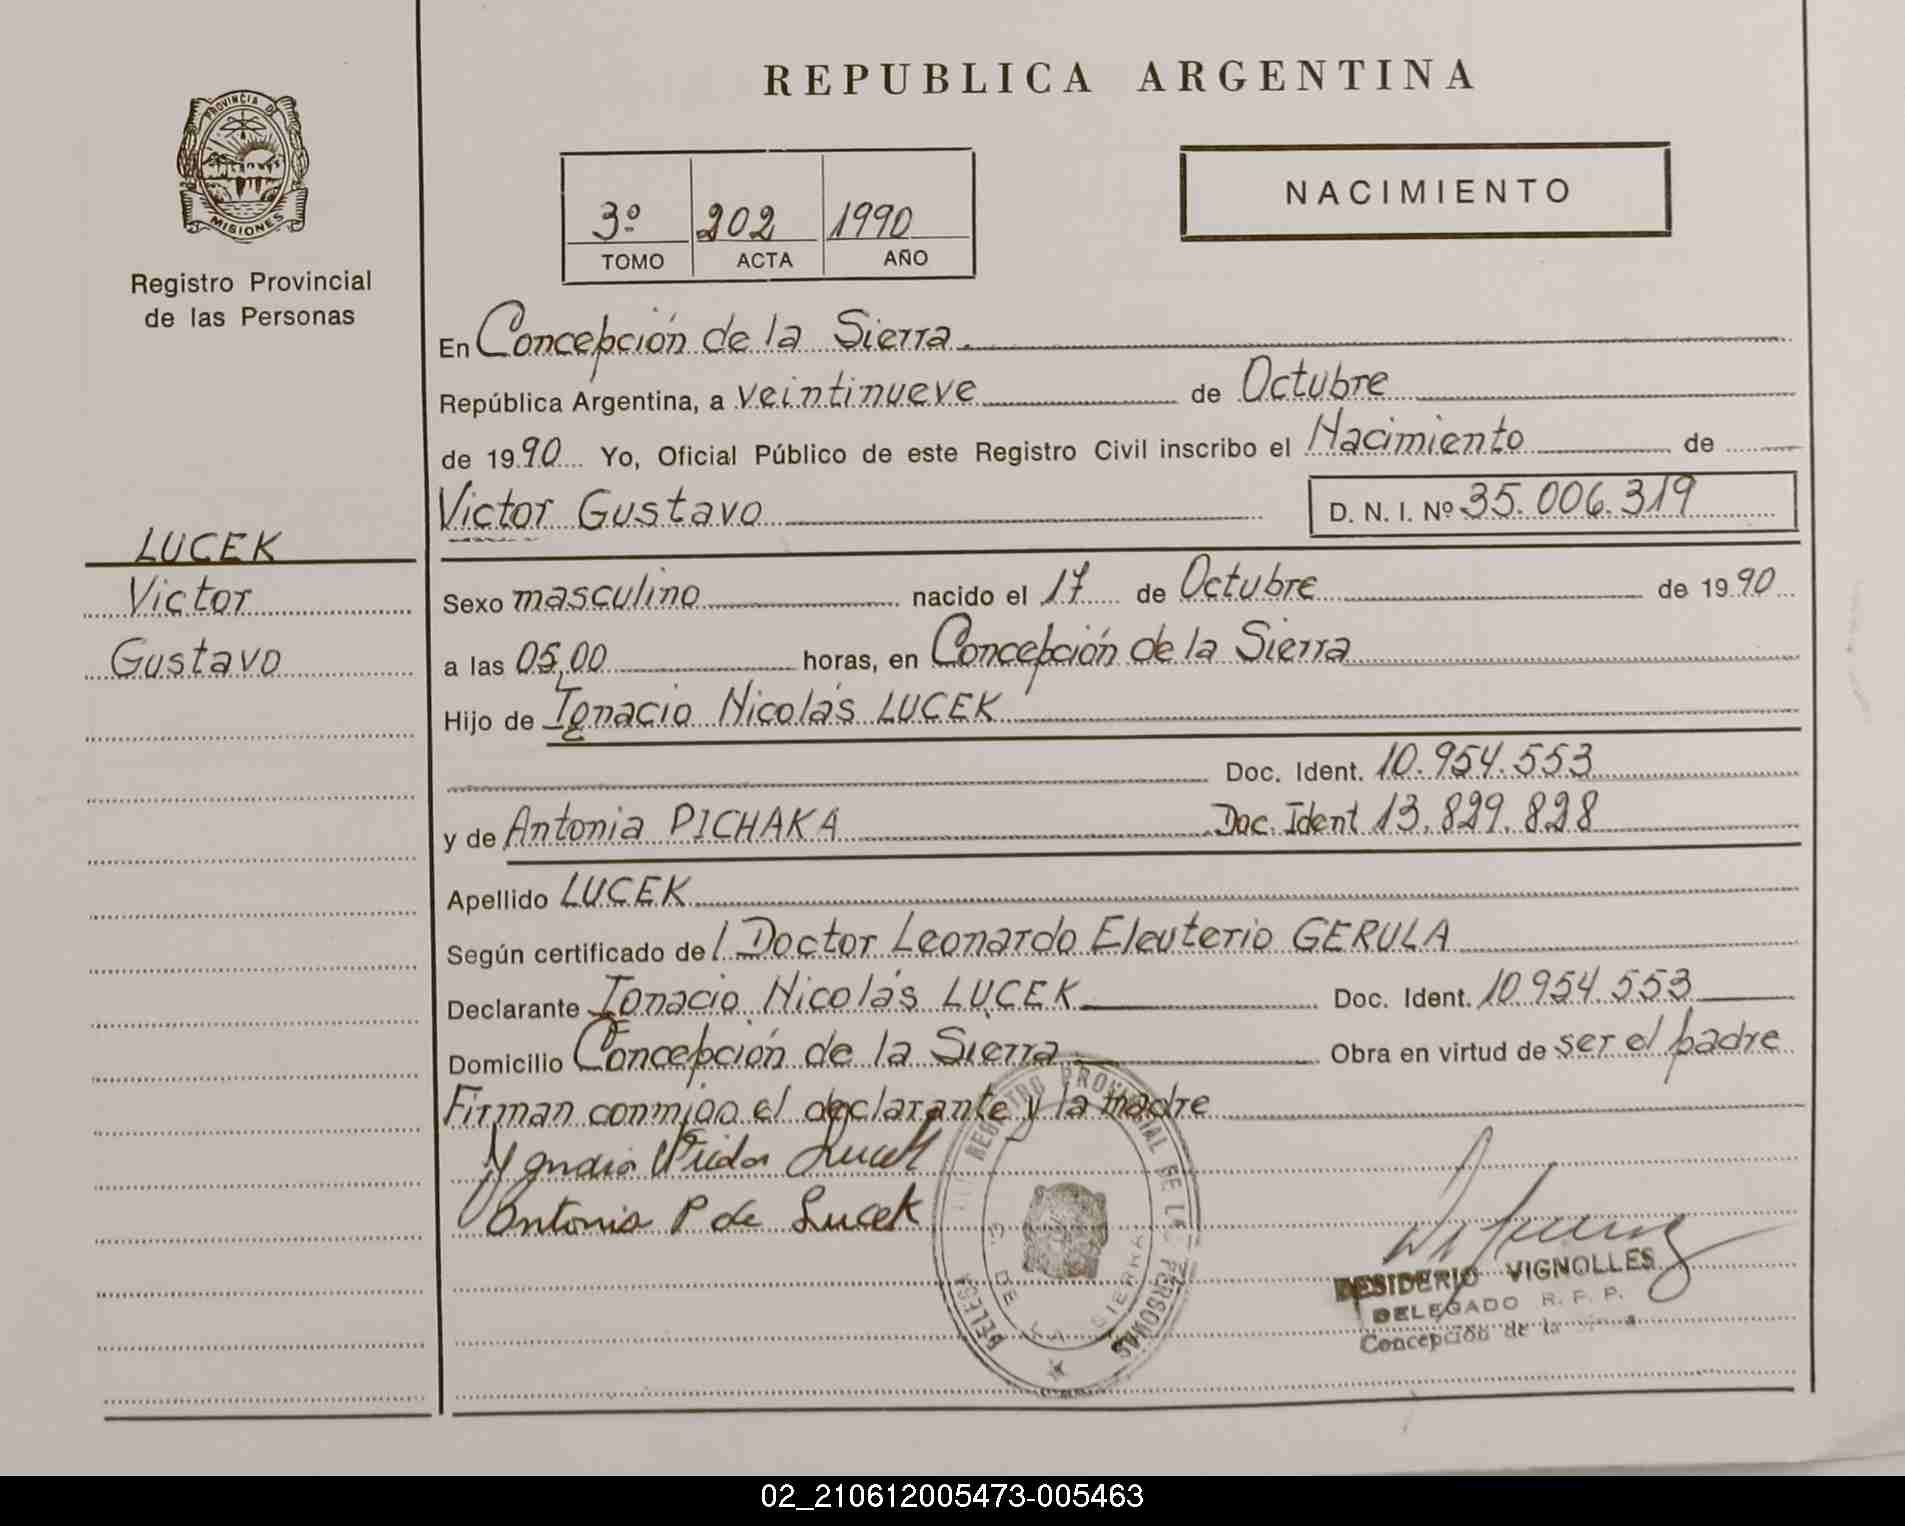 REPUBLICA ARGENTINA
PROVINCIA DE
MISIONES
Registro Provincial
de las Personas
3º 202 1990
TOMO ACTA AÑO
NACIMIENTO
En Concepción de la Sierra.
República Argentina, a veintinueve de Octubre
de 1990 Yo, Oficial Público de este Registro Civil inscribo el Nacimiento de
Victor Gustavo D. N. I. Nº 35.006.319
LUCEK
Victor
Gustavo
Sexo masculino nacido el 17 de Octubre de 1990
a las 05,00 horas, en Concepción de la Sierra
Hijo de Ignacio Nicolás LUCEK
Doc. Ident. 10.954.553
y de Antonia PICHAKA Doc. Ident 13.829.828
Apellido LUCEK
Según certificado de l Doctor Leonardo Eleuterio GERULA
Declarante Ignacio Nicolás LUCEK Doc. Ident. 10.954.553
Domicilio Concepción de la Sierra Obra en virtud de ser el padre
Firman conmigo el declarante y la madre
Lucek
Antonia P de Lucek
REGISTRO PROVINCIAL DE LAS PERSONAS
DE LA SIERRA
DESIDERIO VIGNOLLES
DELEGADO R. P. P.
Concepción de la Sierra
02_210612005473-005463